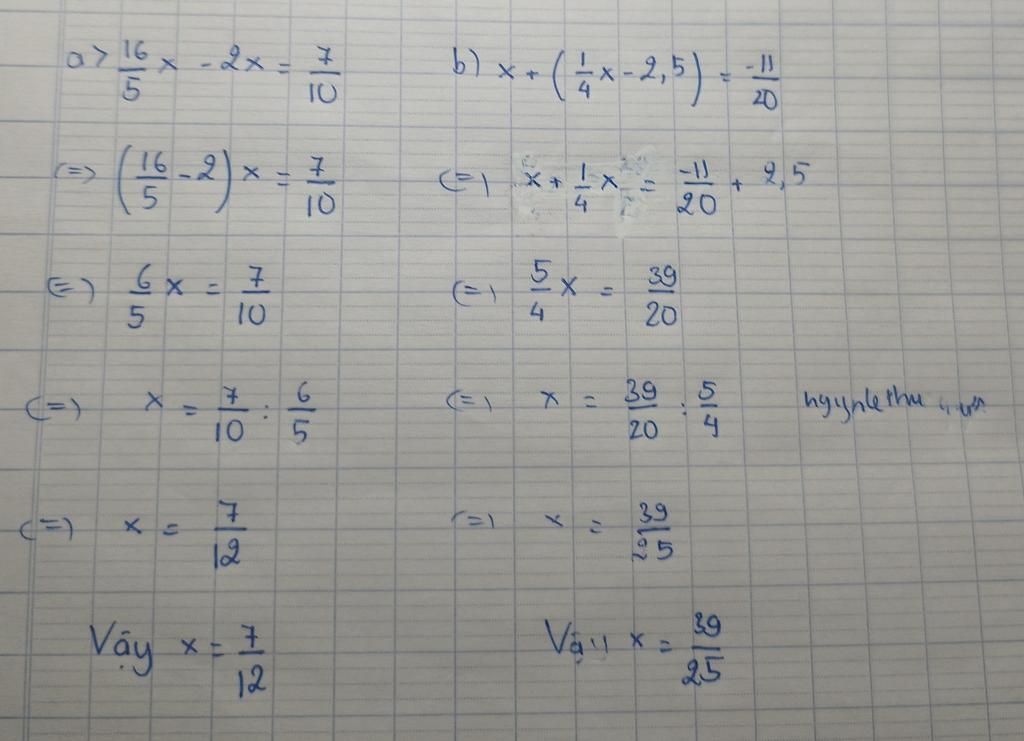 a> 16/5 x - 2x = 7/10
(=> (16/5 - 2) x = 7/10
(=) 6/5 x = 7/10
(=) x = 7/10 : 6/5
(=) x = 7/12
Vậy x = 7/12
b) x + (1/4 x - 2,5) = -11/20
(=) x + 1/4 x = -11/20 + 2,5
(=) 5/4 x = 39/20
(=) x = 39/20 : 5/4
(=) x = 39/25
Vậy x = 39/25